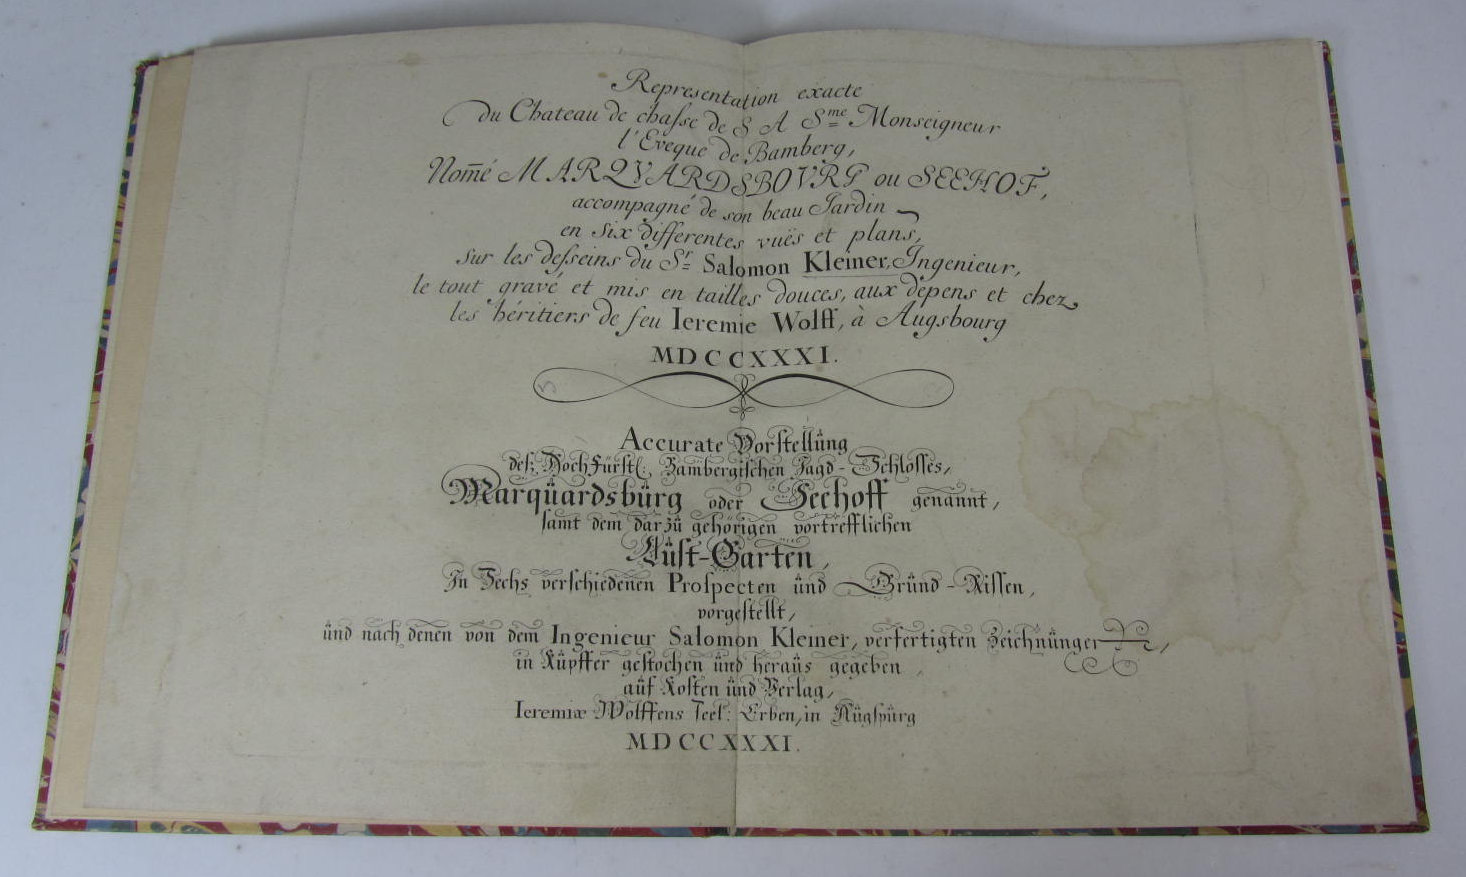 Representation exacte
du Chateau de chasse de S A S.me Monseigneur
l'Eveque de Bamberg,
Nom̄é MARQVARDSBOVRG ou SEEHOF,
accompagné de son beau Jardin
en six differentes vuës et plans,
sur les desseins du S.r Salomon Kleiner, Ingenieur,
le tout gravé et mis en tailles douces, aux depens et chez
les héritiers de feu Ieremie Wolff, à Augsbourg
MDCCXXXI.
Accurate Vorstellŭng
deß HochFürstl: Bambergischen Jagd-Schlosses,
Marqŭardsbŭrg oder Seehoff genannt,
samt dem darzŭ gehörigen vortrefflichen
Lŭst-Garten,
In Sechs verschiedenen Prospecten ŭnd Grŭnd-Rissen,
vorgestellt,
ŭnd nach denen von dem Ingenieur Salomon Kleiner, verfertigten Zeichnŭngen,
in Kŭpffer gestochen ŭnd heraŭs gegeben
aŭf Kosten ŭnd Verlag,
Ieremiæ Wolffens seel: Erben, in Aŭgspŭrg
MDCCXXXI.